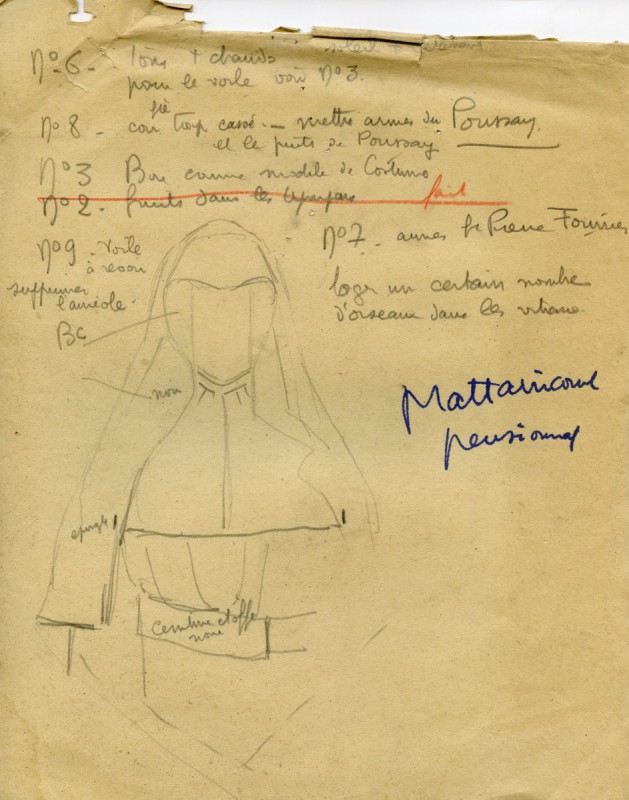 soleil +
N° 6 - tons + chauds
pour le voile voir N° 3.
N° 8 - cou trop cassé. - mettre armes de Poussay
et le puits de Poussay
N° 3 Bon comme modèle de Costume
N° 2 - fruits dans les tympans fait
N° 9 - voile
à revoir
supprimer
l'auréole
N° 7 - armes St Pierre Fourier
loger un certain nombre
d'oiseaux dans les vitraux
Bc
noir
Mattaincourt
pensionnat
épingle
Ceinture étoffe
noire